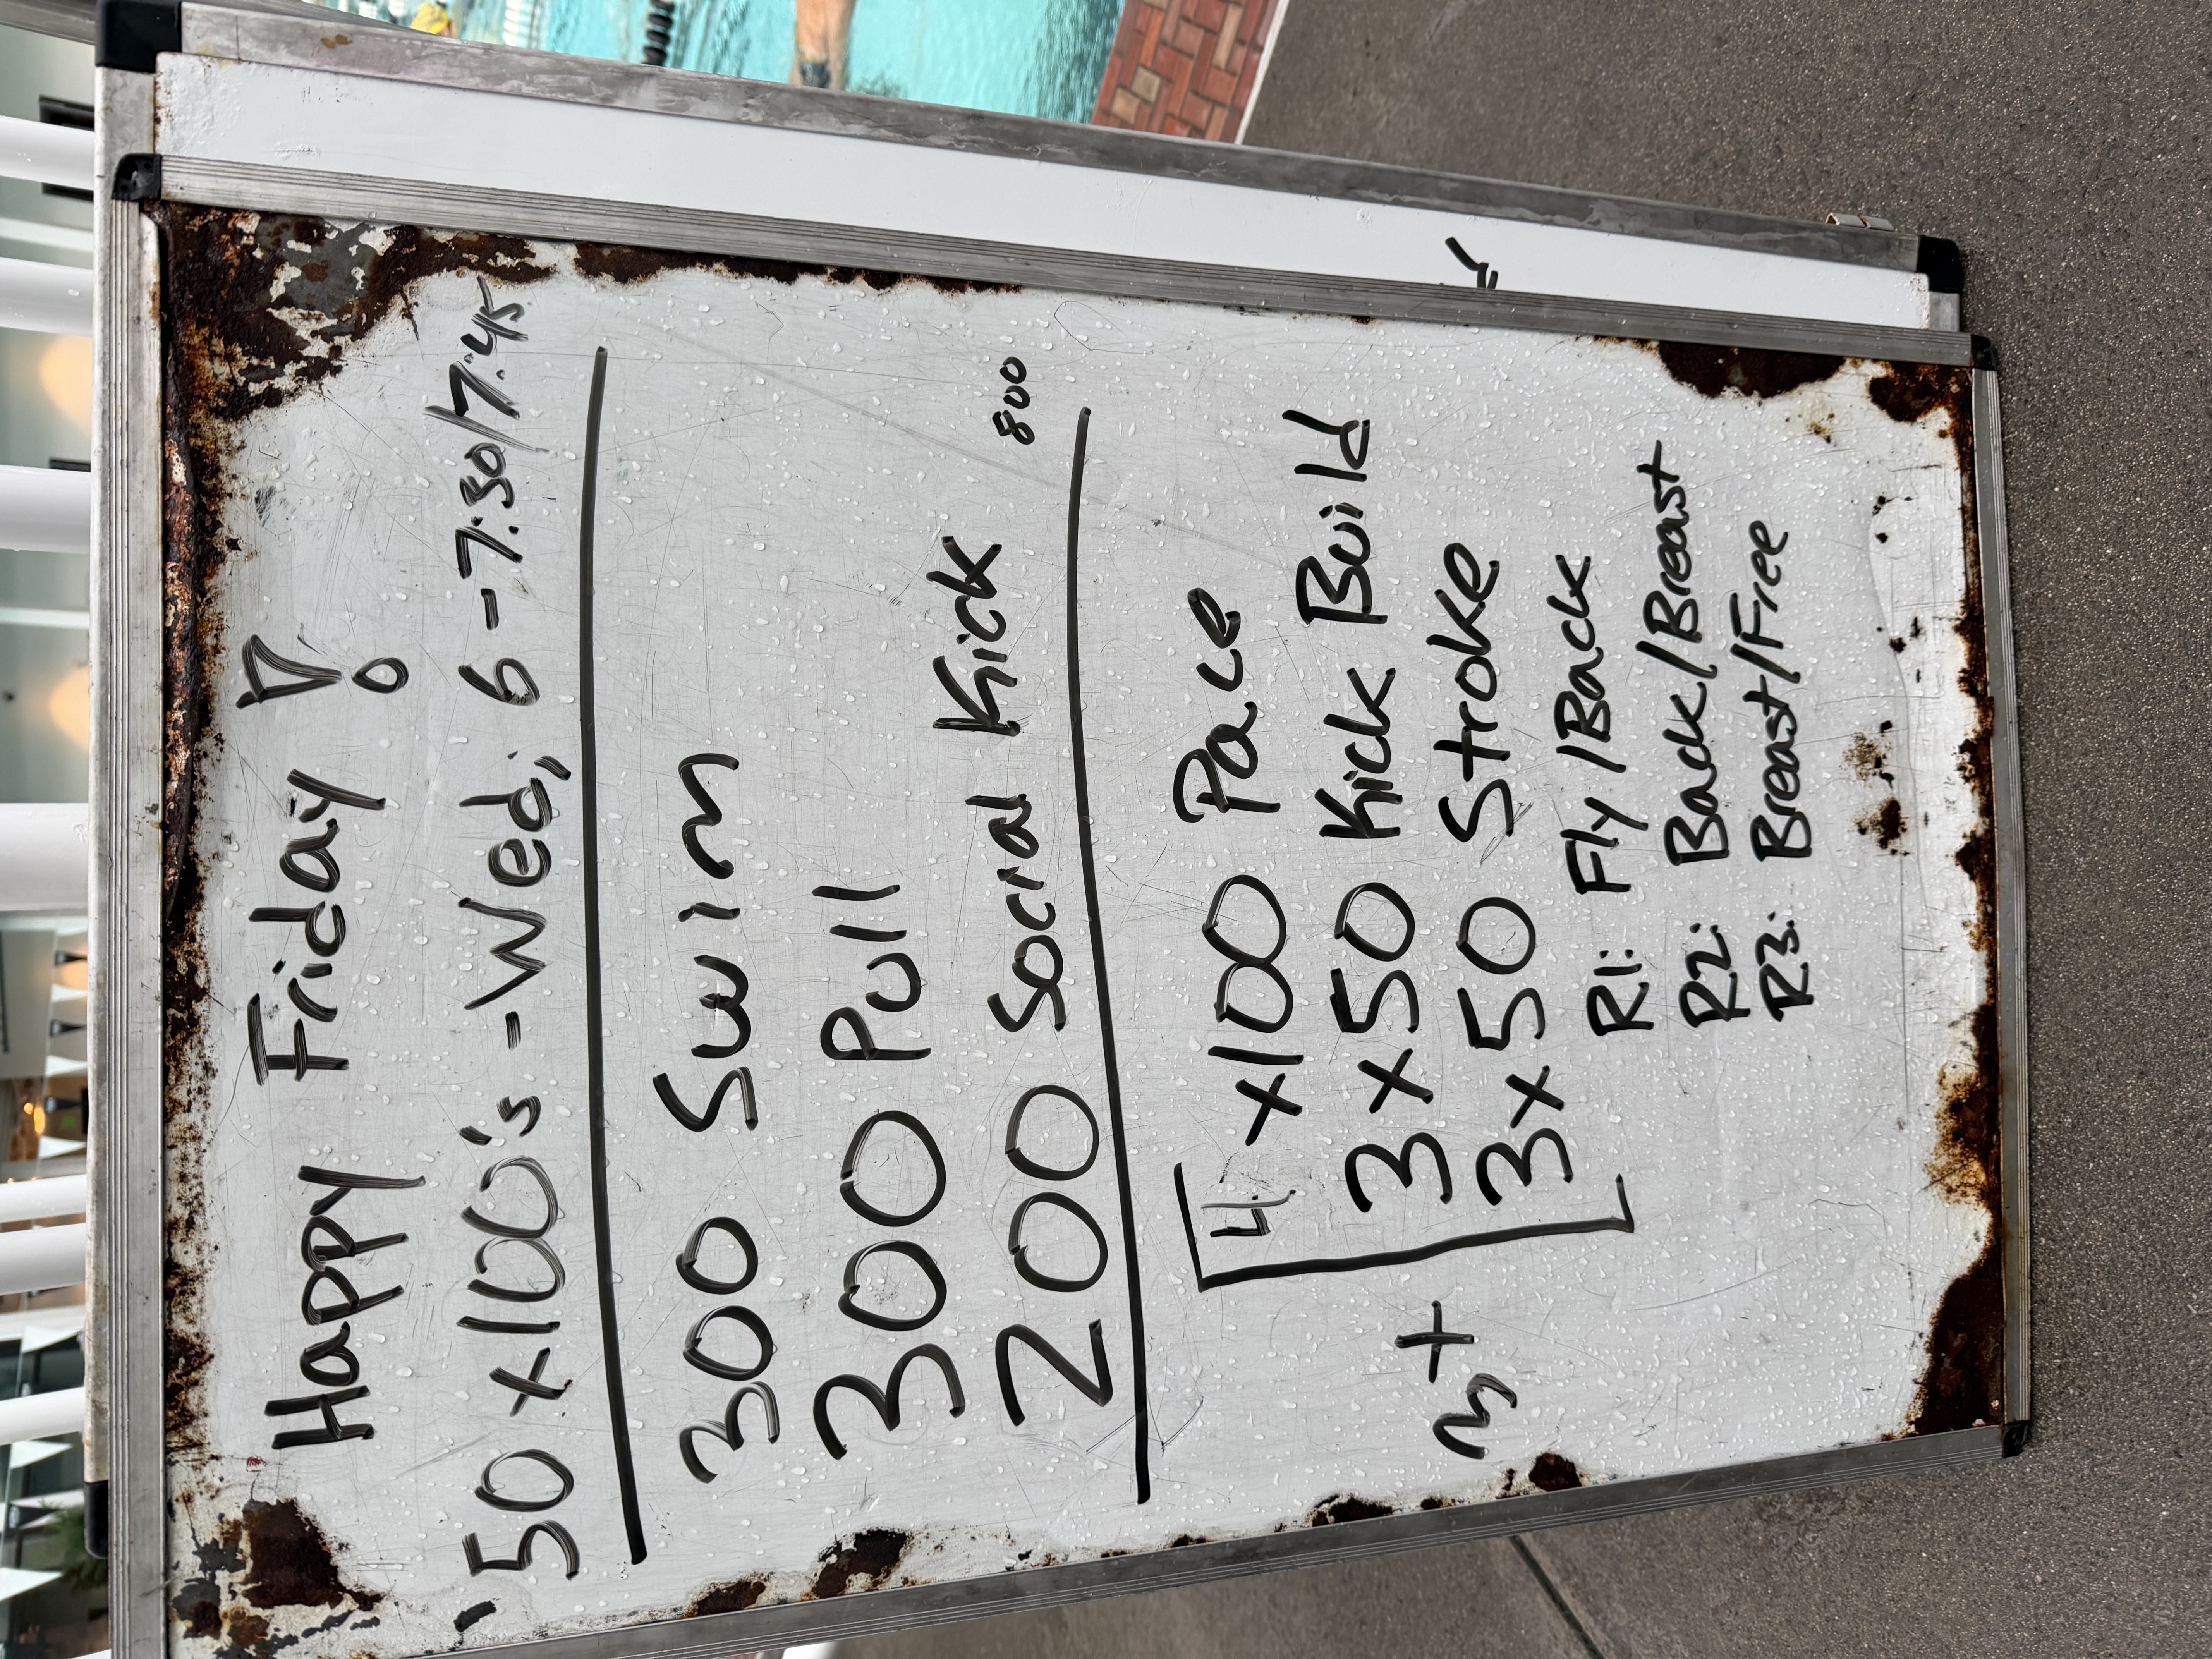 Happy Friday!
50 x100's - Wed, 6 - 7:30/7:45
300 Swim
300 Pull
200 Social Kick 800
4 x100 Pace
3 x 50 Kick Build
3x
3 x 50 Stroke
R1: Fly/Back
R2: Back/Breast
R3: Breast/Free